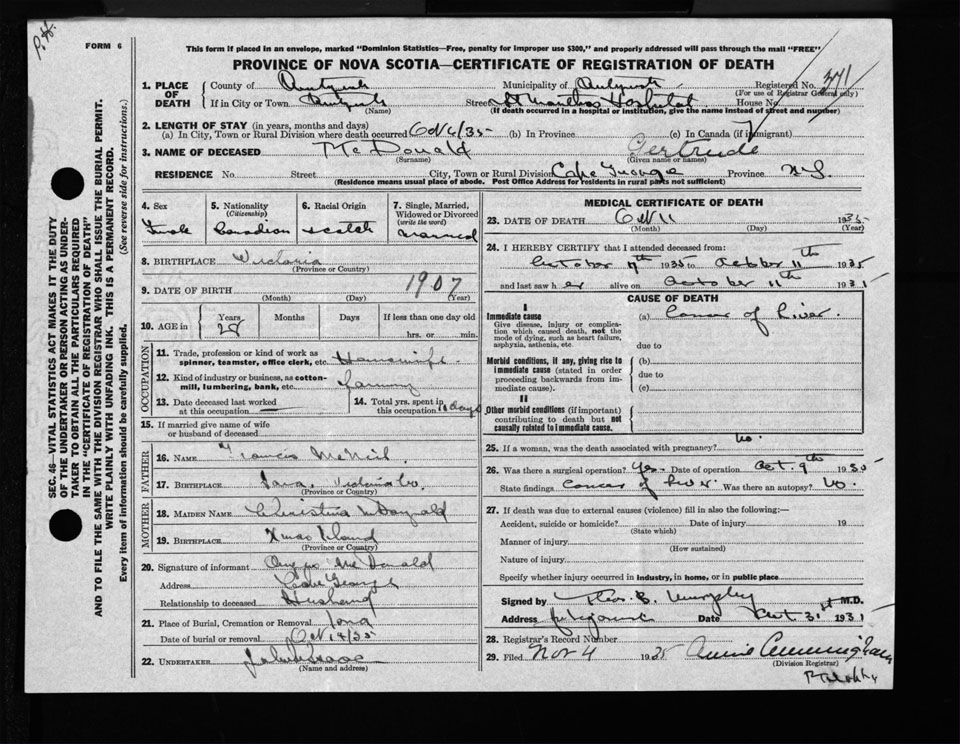 P.H.
FORM 6
This form if placed in an envelope, marked "Dominion Statistics—Free, penalty for improper use $300," and properly addressed will pass through the mail "FREE"
PROVINCE OF NOVA SCOTIA—CERTIFICATE OF REGISTRATION OF DEATH
371
1. PLACE OF DEATH
County of
Municipality of
Registered No.
(For use of Registrar General only)
If in City or Town
(Name)
Street Hospital House No.
(If death occurred in a hospital or institution, give the name instead of street and number)
2. LENGTH OF STAY (in years, months and days)
(a) In City, Town or Rural Division where death occurred (b) In Province (c) In Canada (if immigrant)
3. NAME OF DECEASED McDonald Gertrude
(Surname) (Given name or names)
RESIDENCE No. Street City, Town or Rural Division Cape George Province N.S.
(Residence means usual place of abode. Post Office Address for residents in rural parts not sufficient)
4. Sex
Female
5. Nationality
(Citizenship)
Canadian
6. Racial Origin
Scotch
7. Single, Married, Widowed or Divorced
(write the word)
Married
8. BIRTHPLACE Victoria
(Province or Country)
9. DATE OF BIRTH 1907
(Month) (Day) (Year)
10. AGE in
Years Months Days If less than one day old
28 hrs. or min.
OCCUPATION
11. Trade, profession or kind of work as spinner, teamster, office clerk, etc. Housewife
12. Kind of industry or business, as cotton-mill, lumbering, bank, etc. Farming
13. Date deceased last worked at this occupation
14. Total yrs. spent in this occupation
15. If married give name of wife or husband of deceased
FATHER
16. NAME Francis McNeil
17. BIRTHPLACE Iona Victoria Co.
(Province or Country)
MOTHER
18. MAIDEN NAME Christina
19. BIRTHPLACE Xmas Island
(Province or Country)
20. Signature of informant McDonald
Address
Relationship to deceased Husband
21. Place of Burial, Cremation or Removal Iona
Date of burial or removal Oct 14/35
22. UNDERTAKER
(Name and address)
MEDICAL CERTIFICATE OF DEATH
23. DATE OF DEATH Oct 11 1935
(Month) (Day) (Year)
24. I HEREBY CERTIFY that I attended deceased from:
October 1935 to October 11th 1935
and last saw her alive on October 11th 193
CAUSE OF DEATH
I
Immediate cause
Give disease, injury or complication which caused death, not the mode of dying, such as heart failure, asphyxia, asthenia, etc.
(a) Cancer of Liver.
due to
Morbid conditions, if any, giving rise to immediate cause (stated in order proceeding backwards from immediate cause).
(b)
due to
(c)
II
Other morbid conditions (if important) contributing to death but not causally related to immediate cause.
25. If a woman, was the death associated with pregnancy? No.
26. Was there a surgical operation? Yes. Date of operation Oct. 9th 1935
State findings Cancer of liver. Was there an autopsy? No.
27. If death was due to external causes (violence) fill in also the following:—
Accident, suicide or homicide? Date of injury 19
(State which)
Manner of injury
(How sustained)
Nature of injury
Specify whether injury occurred in industry, in home, or in public place
Signed by M.D.
Address Date 31st 193
28. Registrar's Record Number
29. Filed Nov 4 1935 Annie Cunningham
(Division Registrar)
SEC. 46—VITAL STATISTICS ACT MAKES IT THE DUTY
OF THE UNDERTAKER OR PERSON ACTING AS UNDER-
TAKER TO OBTAIN ALL THE PARTICULARS REQUIRED
IN THE "CERTIFICATE OF REGISTRATION OF DEATH"
AND TO FILE THE SAME WITH THE DIVISION REGISTRAR WHO SHALL ISSUE THE BURIAL PERMIT.
WRITE PLAINLY WITH UNFADING INK. THIS IS A PERMANENT RECORD.
Every item of information should be carefully supplied. (See reverse side for instructions.)